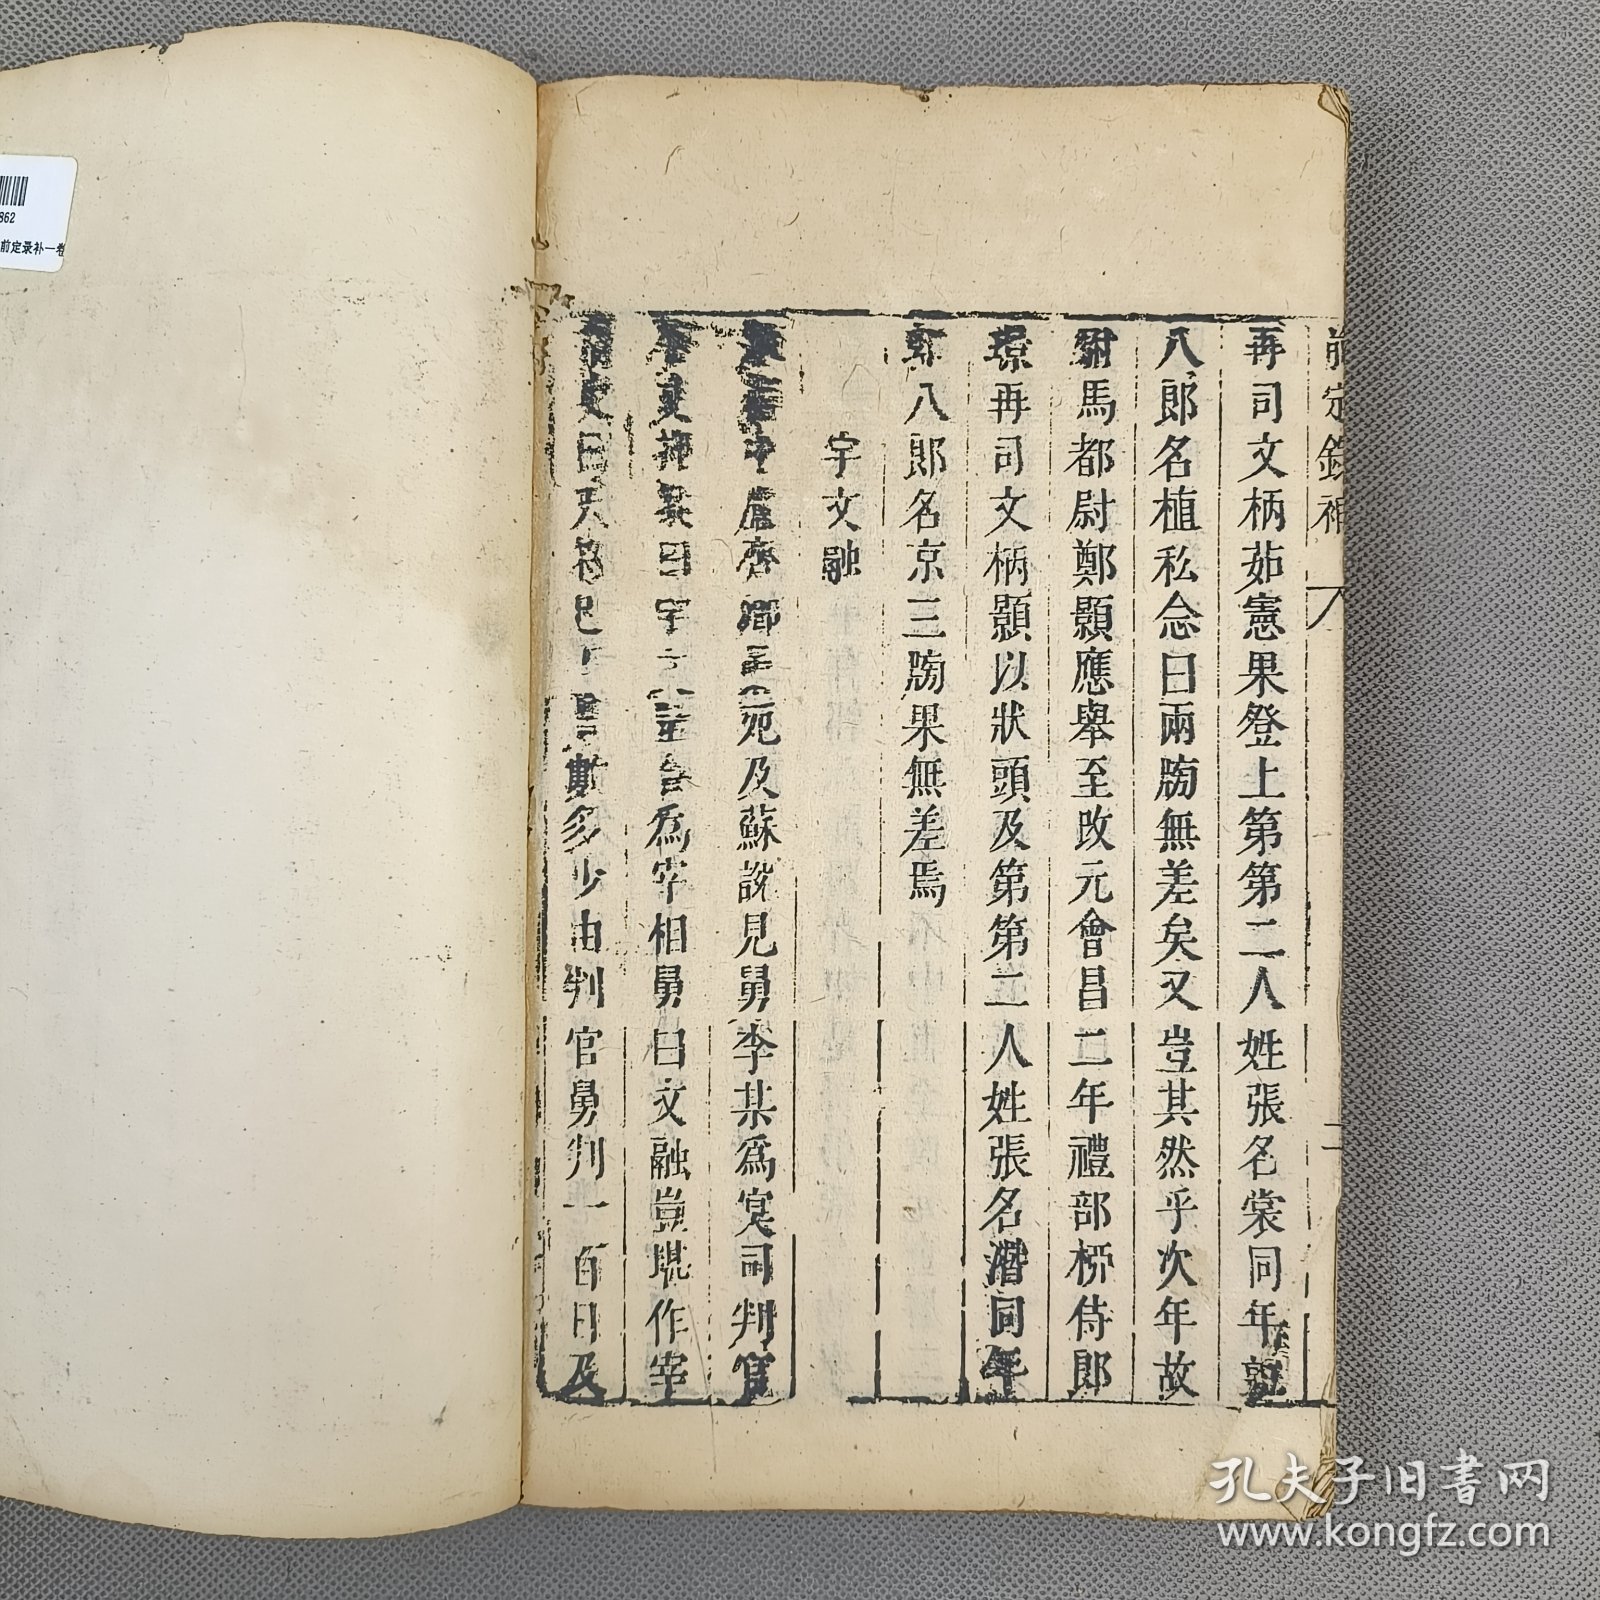 前定錄補
二
再司文柄茹憲果登上第第二人姓張名棠同年郭
八郎名植私念曰兩牓無差矣又豈其然乎次年故
駙馬都尉鄭顥應舉至改元會昌二年禮部栁侍郎
璟再司文柄顥以狀頭及第第二人姓張名潛同年
八郎名京三牓果無差焉
宇文融
盧齊卿 及蘇說見舅李某為冥司判官
宇 為宰相舅曰文融豈堪作宰
數多少由判官舅判一百日及
862
前定录补一卷
孔夫子旧书网
www.kongfz.com